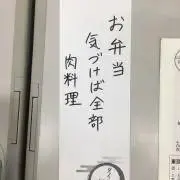 お弁当
気づけば全部
肉料理